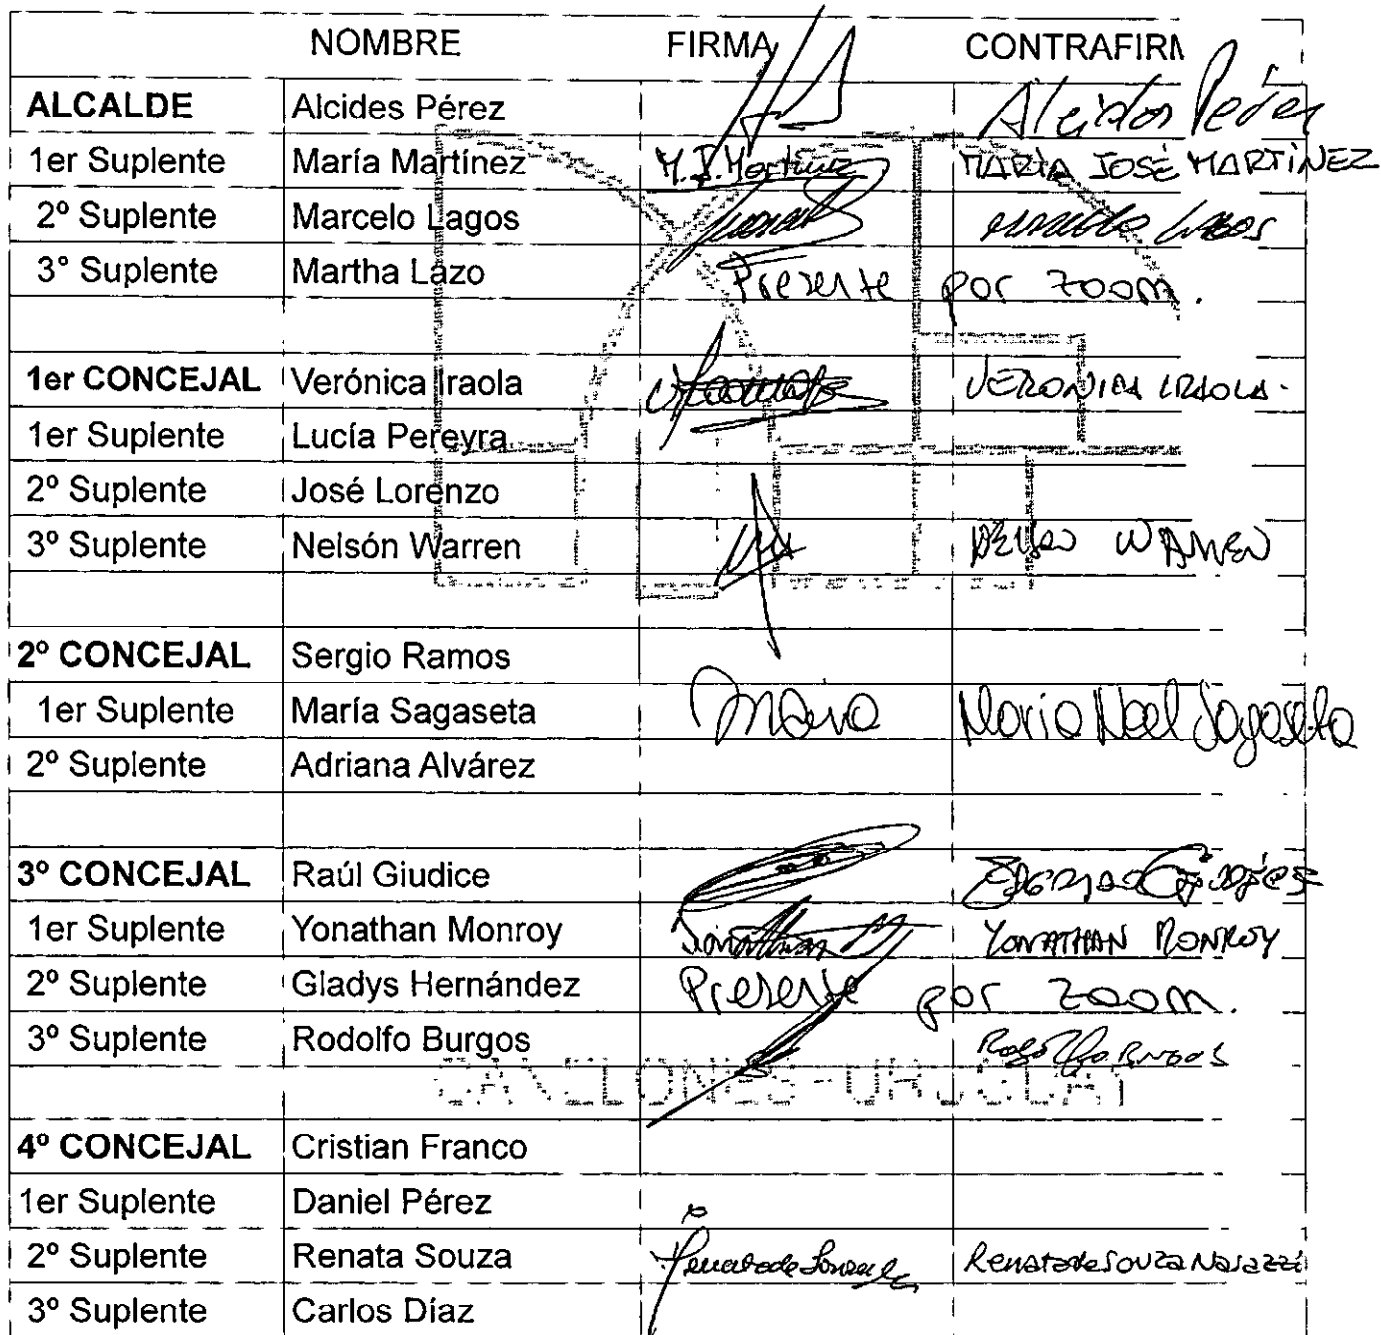 NOMBRE FIRMA CONTRAFIRM
ALCALDE Alcides Pérez Alcides Perez
1er Suplente María Martínez M.J.Martínez MARÍA JOSÉ MARTÍNEZ
2º Suplente Marcelo Lagos Lagos
3° Suplente Martha Lazo Presente por zoom.
1er CONCEJAL Verónica Iraola VERONICA IRAOLA.
1er Suplente Lucía Pereyra
2º Suplente José Lorenzo
3º Suplente Nelsón Warren NELSON WARREN
2º CONCEJAL Sergio Ramos
1er Suplente María Sagaseta María María Noel Sagaseta
2º Suplente Adriana Alvárez
3º CONCEJAL Raúl Giudice
1er Suplente Yonathan Monroy Yonathan YONATHAN MONROY
2º Suplente Gladys Hernández Presente por zoom.
3º Suplente Rodolfo Burgos Rodolfo Burgos
CANELONES - URUGUAY
4º CONCEJAL Cristian Franco
1er Suplente Daniel Pérez
2º Suplente Renata Souza Renata de Souza Renata de Souza Nasazzi
3º Suplente Carlos Díaz